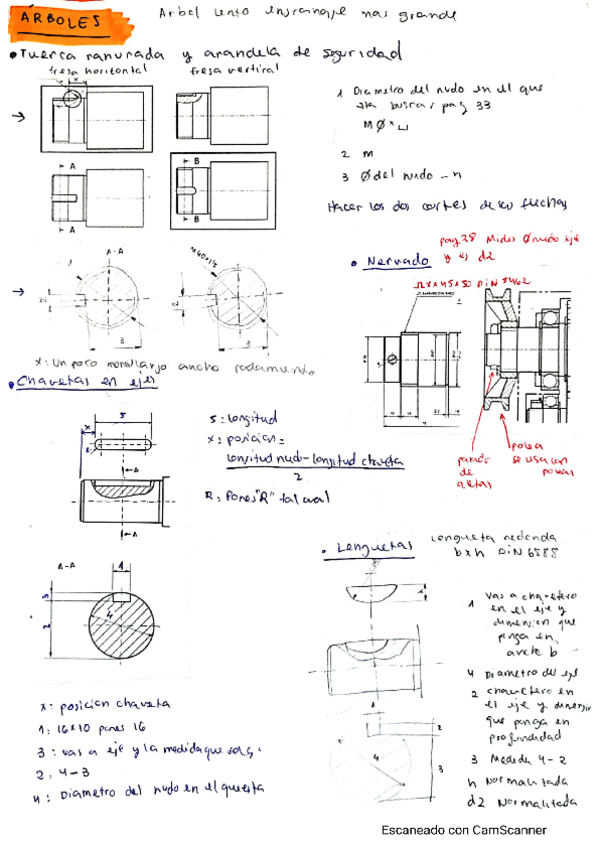 ÁRBOLES
Arbol lento engranaje mas grande
• Tuerca ranurada y arandela de seguridad
fresa horizontal
fresa vertical
x
A
A
B
B
1 Diametro del nudo en el que
esta buscar pag 33
M Ø x
2 m
3 Ø del nudo - n
Hacer los dos cortes de las flechas
A-A
M40x1,5
1
2
2
3
3
x: Un poco mas largo ancho rodamiento
• Nervado
pag 28 Mides Ø nudo eje
y es d2
DIN 5462
parado
de
aletas
polea
se usa con
poleas
• Chavetas en ejes
5
x
R
A
A
5: longitud
x: posicion =
longitud nudo - longitud chaveta
2
R: Pones "R" tal cual
A-A
1
3
2
4
x: posicion chaveta
1: 16x10 pones 16
3: vas a eje y la medida que salga
2: 4-3
4: Diametro del nudo en el que esta
• Lenguetas
Lengueta redonda
b x h DIN 6888
1
2
3
4
1 vas a chavetero
en el eje y
dimension que
ponga en
ancho b
4 Diametro del eje
2 chavetero en
el eje y dimension
que ponga en
profundidad
3 Medida 4-2
h Normalizada
d2 Normalizada
Escaneado con CamScanner